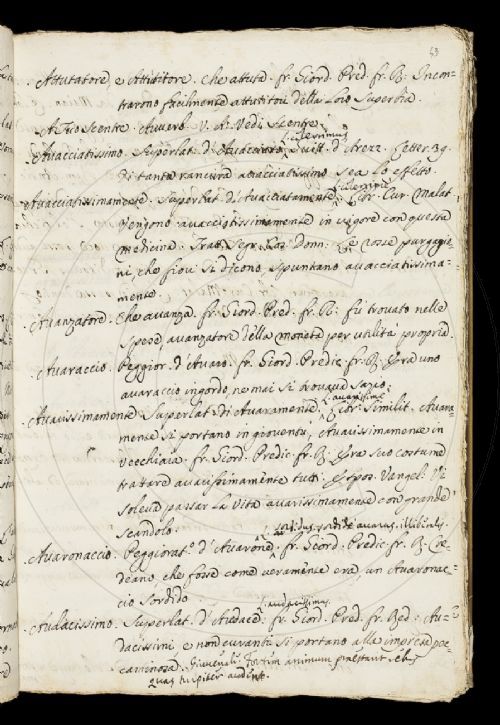 53
Attutatore, e Attutitore. Che attuta. fr. Giord. Pred. fr. R. Incon-
trarono facilmente attutitori della loro Superbia.
A. Tro Scente. Avverb. V. A. Vedi Scente.
L. celerrimus
Avacciatissimo. Superlat. di Avacciato. Guitt. d'Arezz. Letter. 39.
Di tanta rancura avacciatissimo sea lo effetto.
Avacciatissimamente. Superlat. di Avacciatamente. Cur. Malat.
Vengono avacciatissimamente in vigore con questa
medicina. Tratt. Segr. Cos. Donn. Le rosse purgagio-
ni, che fiori si dicono, spuntano avacciatissima-
mente.
Avanzatore. Che avanza. fr. Giord. Pred. fr. R. fu trovato nelle
spese avanzatore della moneta per utilità propria.
Avaraccio. Peggior. d'Avaro. fr. Giord. Predic. fr. R. Era uno
avaraccio ingordo, ne mai si trovava sazio.
Avarissimamente. Superlat. di Avaramente. Similit. Avara-
mente si portano in gioventù, Avarissimamente in
vecchiaia. fr. Giord. Predic. fr. R. Era suo costume
trattare avarissimamente tutti. Espos. Vangel. Vi
soleva passar la vita avarissimamente con grande
scandolo.
L. sordidus, sordide avarus, illiberalis.
Avaronaccio. Peggiorat.º d'Avarone. fr. Giord. Predic. fr. R. Cre-
deano, che fosse come veramente era, un Avaronac-
cio sordido.
L. audacissimus
Audacissimo. Superlat. d'Audace. fr. Giord. Pred. fr. Red. Au-
dacissimi, e non curanti si portano alla impresa pec-
caminosa. Giuvenal. fortem animum praestant rebus
quas turpiter audent.